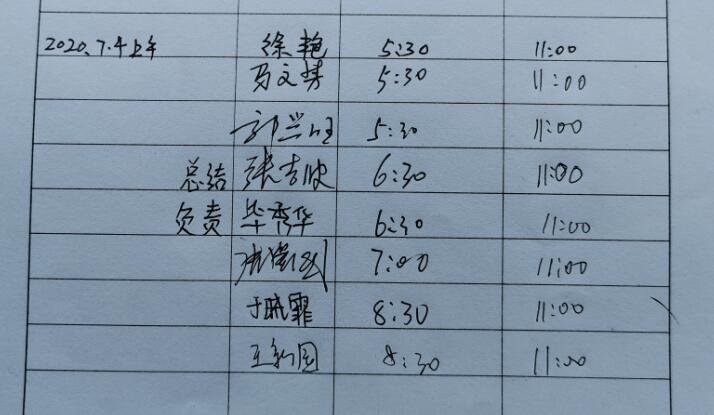 2020.7.4上午 徐艳 5:30 11:00
马文 5:30 11:00
郭兴旺 5:30 11:00
总结 张吉波 6:30 11:00
负责 毕秀华 6:30 11:00
7:00 11:00
于晓霏 8:30 11:00
王新国 8:30 11:00